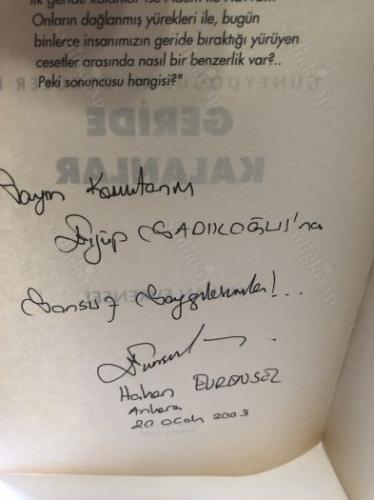 Onların dağlanmış yürekleri ile, bugün
binlerce insanımızın geride bıraktığı yürüyen
cesetler arasında nasıl bir benzerlik var?..
Peki sonuncusu hangisi?"
GERİDE
KALANLAR
Sayın Komutanım
Eyüp SADIKOĞLU'na
Sonsuz Saygılarımla!...
Hakan EVRENSEL
Ankara
20 Ocak 2003